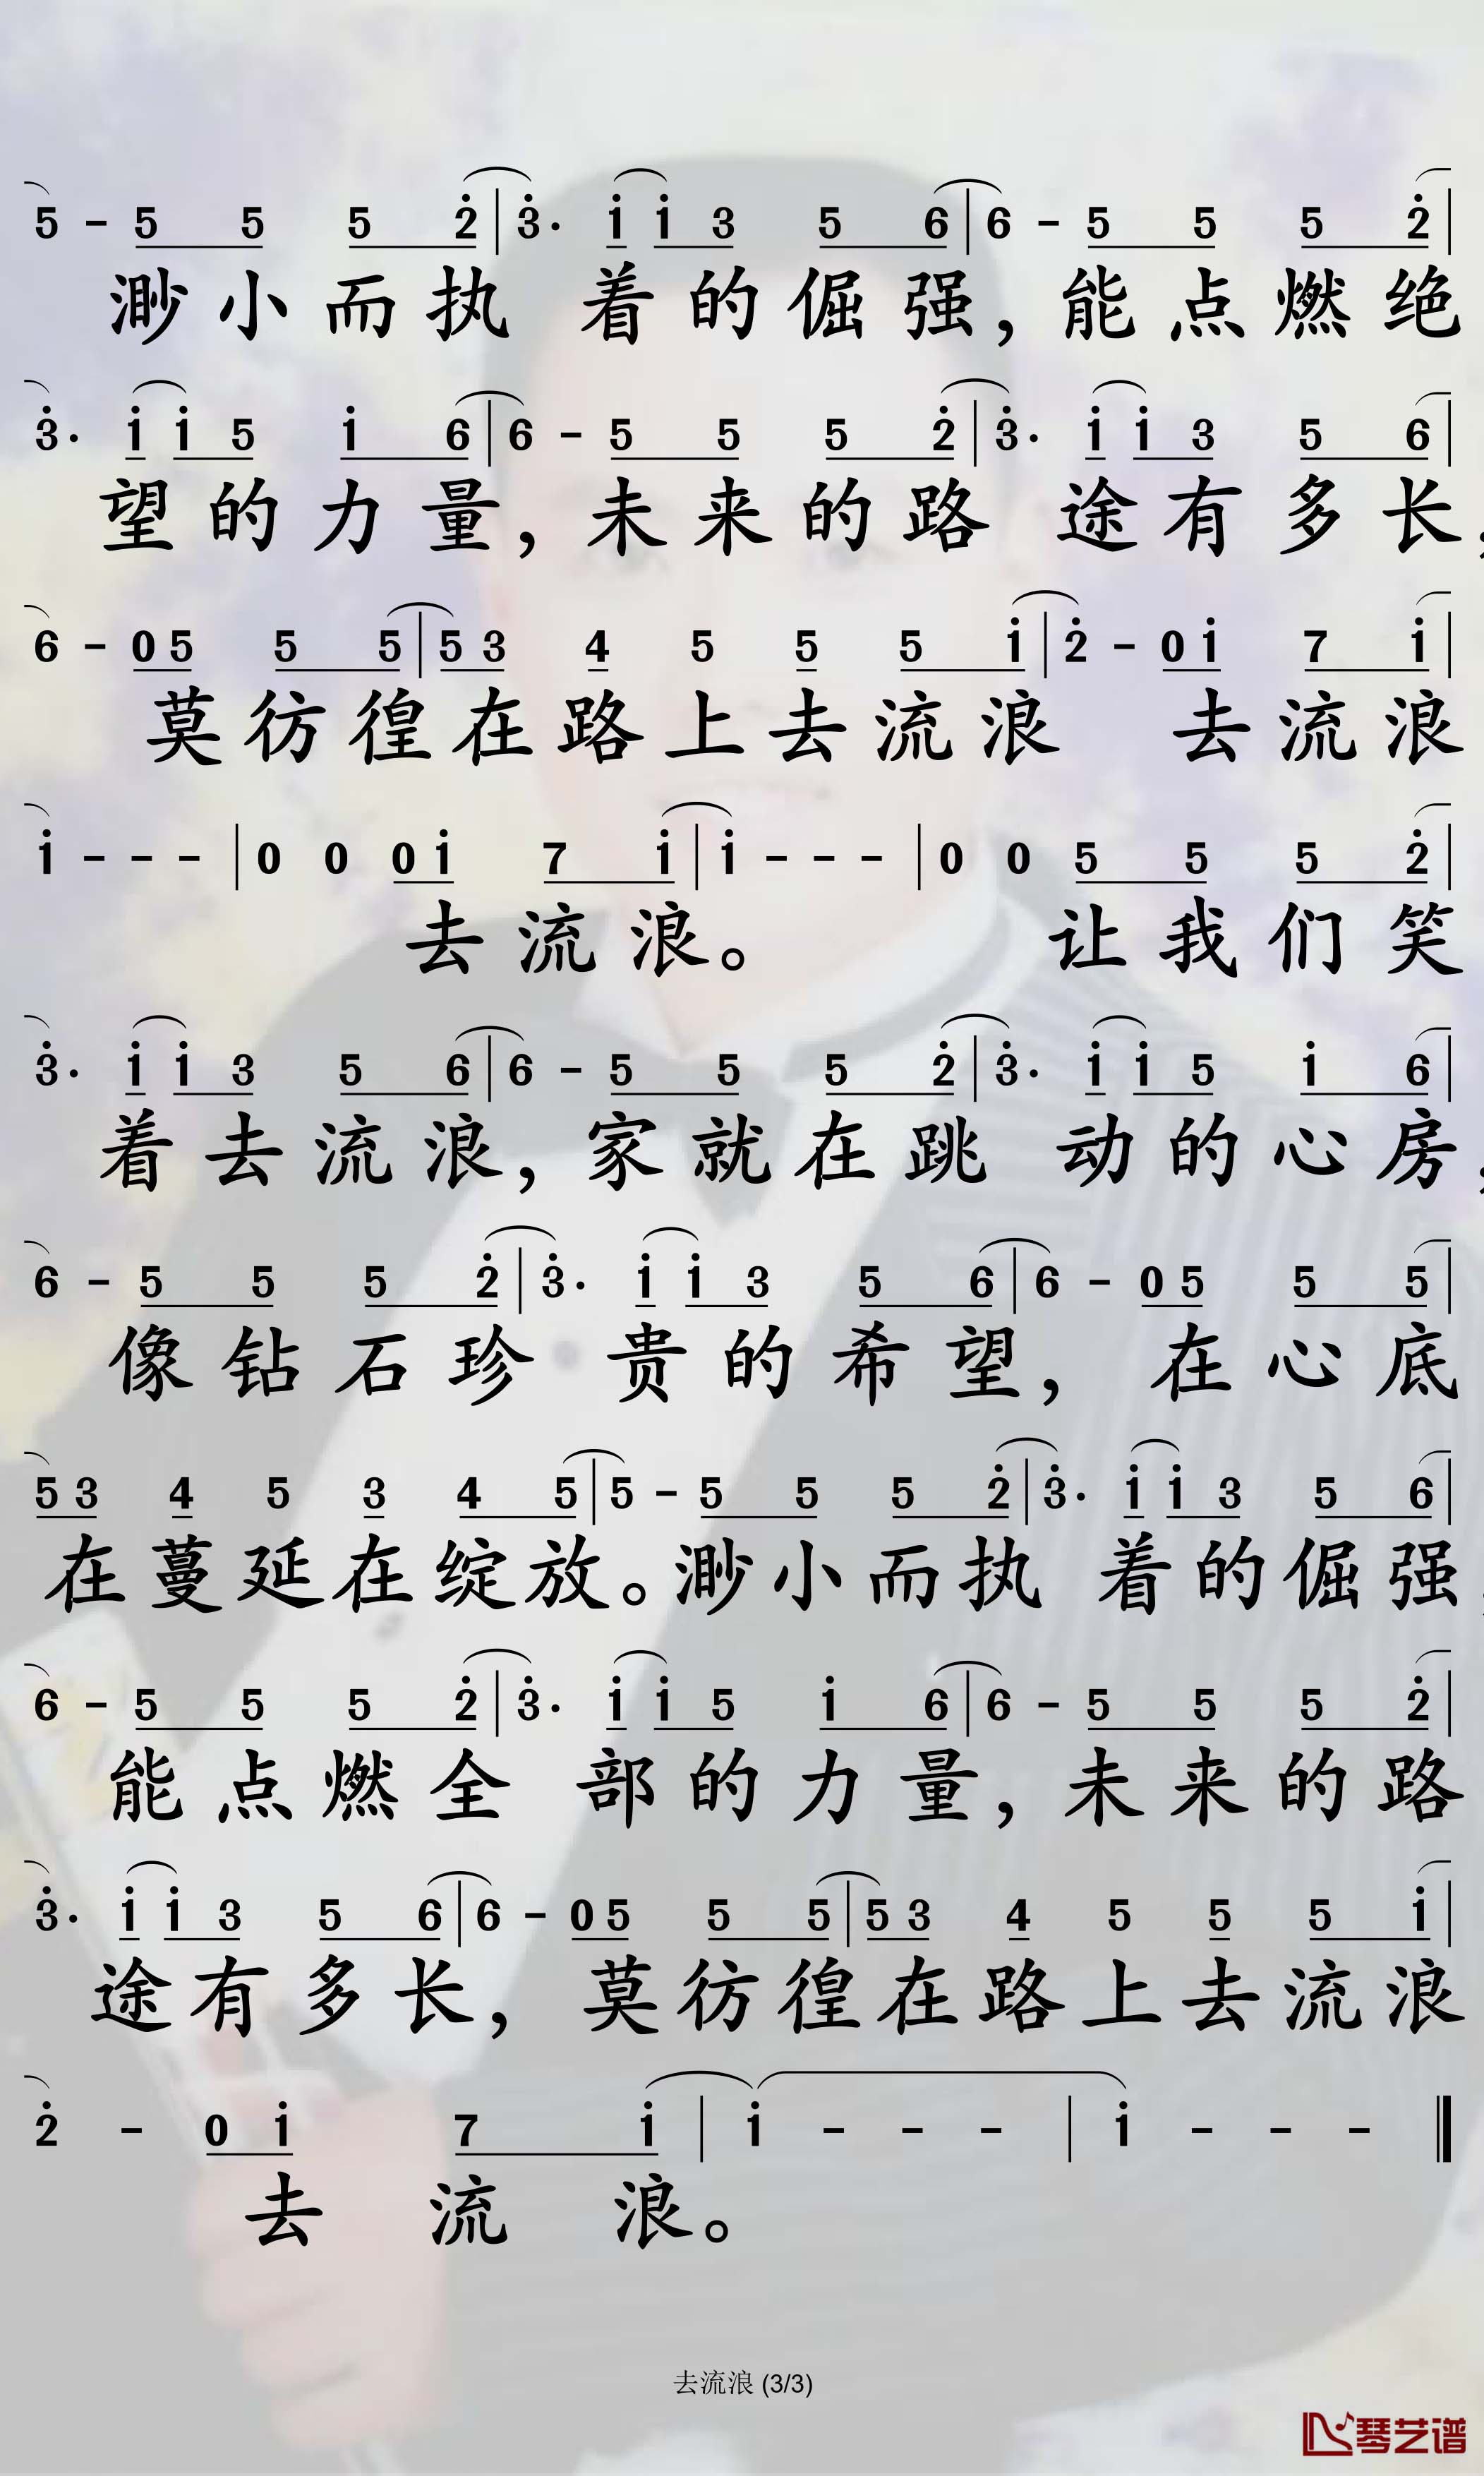 5 - 5 5 5 2̇ | 3̇· i i 3 5 6 | 6 - 5 5 5 2̇ |
渺小而执 着的倔强，能点燃绝
3̇· i i 5 i 6 | 6 - 5 5 5 2̇ | 3̇· i i 3 5 6 |
望的力量，未来的路 途有多长，
6 - 0 5 5 5 | 5 3 4 5 5 5 i | 2̇ - 0 i 7 i |
莫彷徨在路上去流浪 去流浪
i - - - | 0 0 0 i 7 i | i - - - | 0 0 5 5 5 2̇ |
去流浪。 让我们笑
3̇· i i 3 5 6 | 6 - 5 5 5 2̇ | 3̇· i i 5 i 6 |
着去流浪，家就在跳 动的心房，
6 - 5 5 5 2̇ | 3̇· i i 3 5 6 | 6 - 0 5 5 5 |
像钻石珍 贵的希望，在心底
5 3 4 5 3 4 5 | 5 - 5 5 5 2̇ | 3̇· i i 3 5 6 |
在蔓延在绽放。渺小而执 着的倔强，
6 - 5 5 5 2̇ | 3̇· i i 5 i 6 | 6 - 5 5 5 2̇ |
能点燃全 部的力量，未来的路
3̇· i i 3 5 6 | 6 - 0 5 5 5 | 5 3 4 5 5 5 i |
途有多长，莫彷徨在路上去流浪
2̇ - 0 i 7 i | i - - - | i - - - ‖
去流浪。
去流浪 (3/3)
琴艺谱